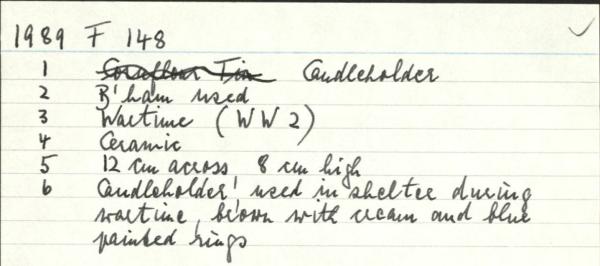 1989 F 148
1 Candleholder
2 B'ham used
3 Wartime (WW2)
4 Ceramic
5 12 cm across 8 cm high
6 Candleholder, used in shelter during
wartime, brown with cream and blue
painted rings